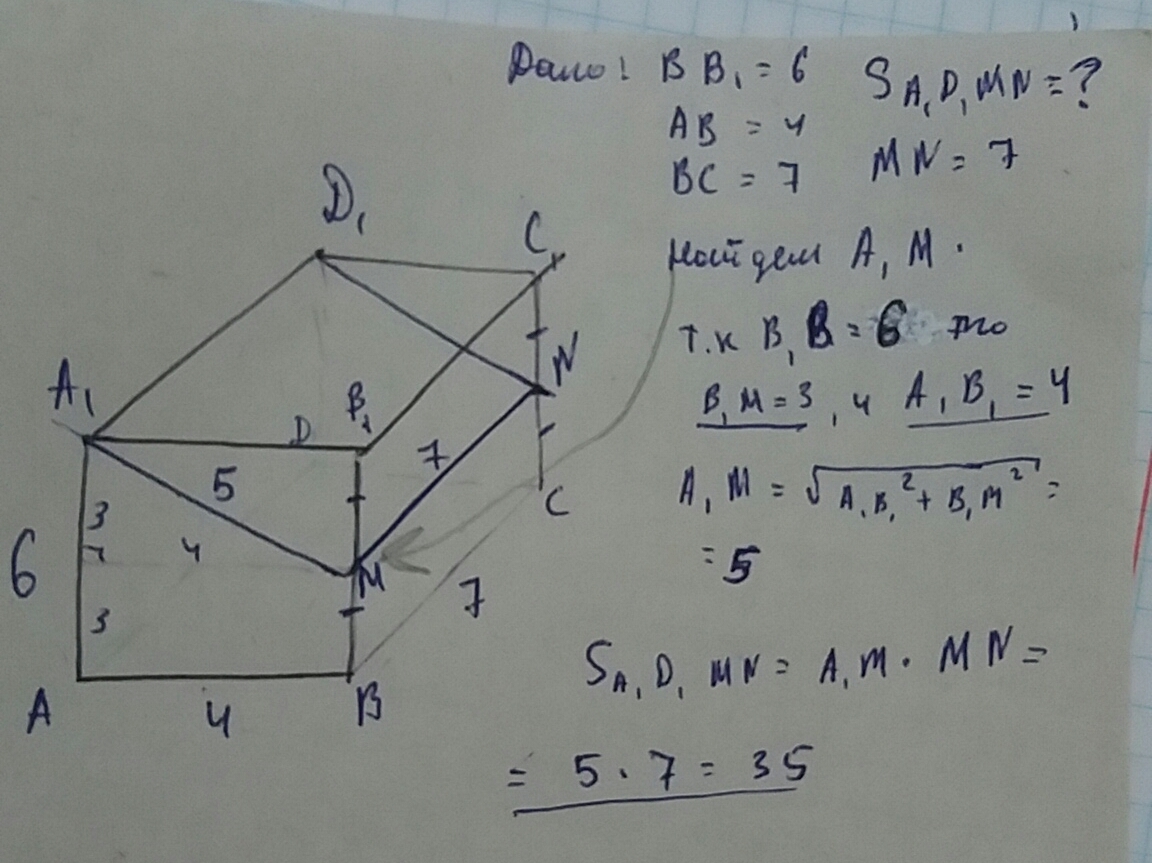 Дано: B B₁ = 6 S A₁D₁MN = ?
AB = 4
BC = 7 MN = 7
Найдем A₁M.
т.к B₁B = 6 то
B₁M = 3, и A₁B₁ = 4
A₁M = √A₁B₁² + B₁M² =
= 5
S A₁D₁MN = A₁M · MN =
= 5 · 7 = 35
D₁
C₁
N
A₁
D
B₁
7
5
3
4
C
6
M
3
7
A
4
B